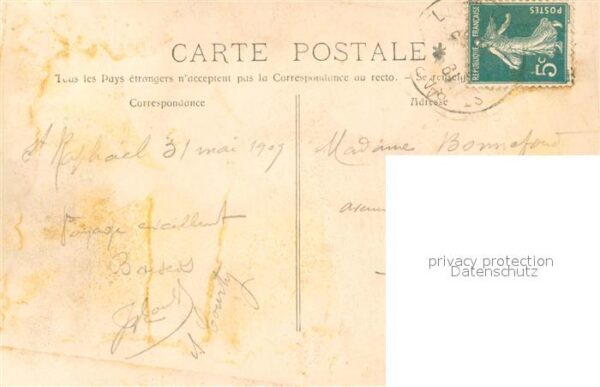 CARTE POSTALE
Tous les Pays étrangers n'acceptent pas la Correspondance au recto. — Se renseig
Correspondance
Adresse
REPUBLIQUE FRANÇAISE
POSTES
5c
St Raphael 31 mai 1909
Voyage excellent
Baisers
Madame Bonnefond
privacy protection
Datenschutz